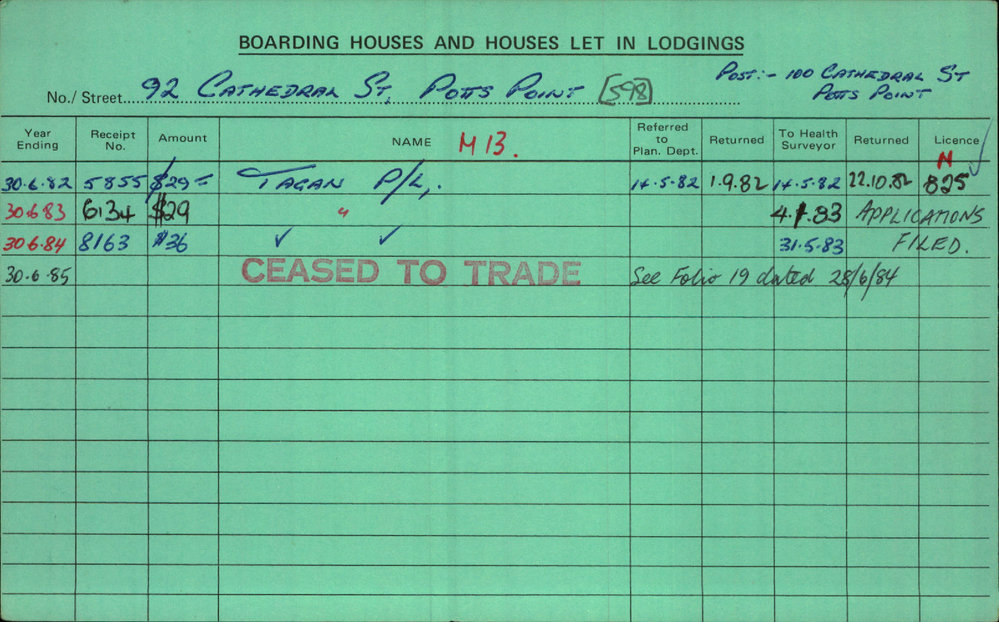 BOARDING HOUSES AND HOUSES LET IN LODGINGS
Post:- 100 Cathedral St
Potts Point
No./ Street 92 Cathedral St, Potts Point [598]
Year Ending Receipt No. Amount NAME M 13. Referred to Plan. Dept. Returned To Health Surveyor Returned Licence
N
30.6.82 5855 $29= TAGAN P/L, 14.5.82 1.9.82 14.5.82 22.10.82 825
30.6.83 6134 $29 " 4.1.83 APPLICATIONS
30.6.84 8163 $36 ✓ ✓ 31.5.83 FILED.
30.6.85 CEASED TO TRADE See Folio 19 dated 28/6/84